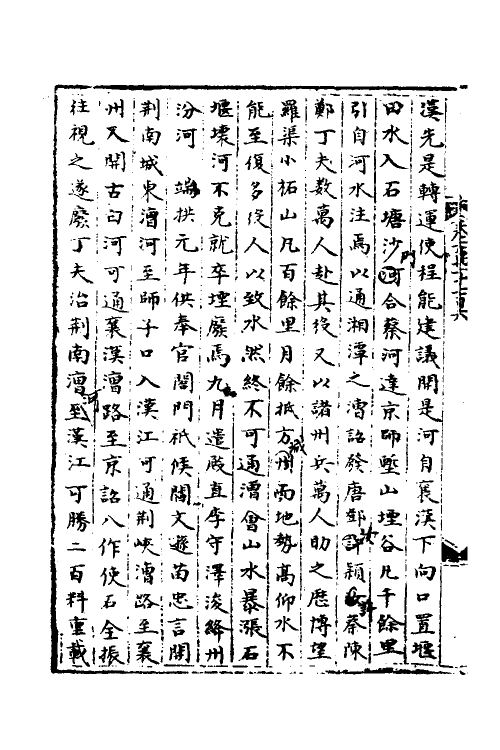 漢先是轉運使程能建議開是河自襄漢下向口置堰
回水入石塘沙河合蔡河達京師塹山堙谷凡千餘里
引自河水注焉以通湘潭之漕詔發唐鄧許潁蔡陳
鄭丁夫數萬人赴其役又以諸州兵萬人助之歷博望
羅渠小祏山凡百餘里月餘抵方城而地勢高仰水不
能至復多役人以致水然終不可通漕會山水暴漲石
堰壞河不克就卒堙廢焉九月遣殿直李守澤浚絳州
汾河 端拱元年供奉官閤門祗候閻文遜苗忠言開
荆南城東漕河至師子口入漢江可通荆峽漕路至襄
州又開古白河可通襄漢漕路至京詔八作使石全振
往視之遂廢丁夫治荆南漕河至漢江可勝二百料重載